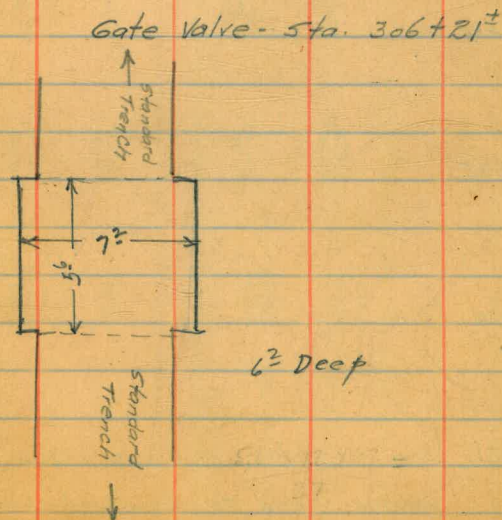 Gate Valve - Sta. 306+21±
Standard
Trench
7²
5⁶
6² Deep
Standard
Trench